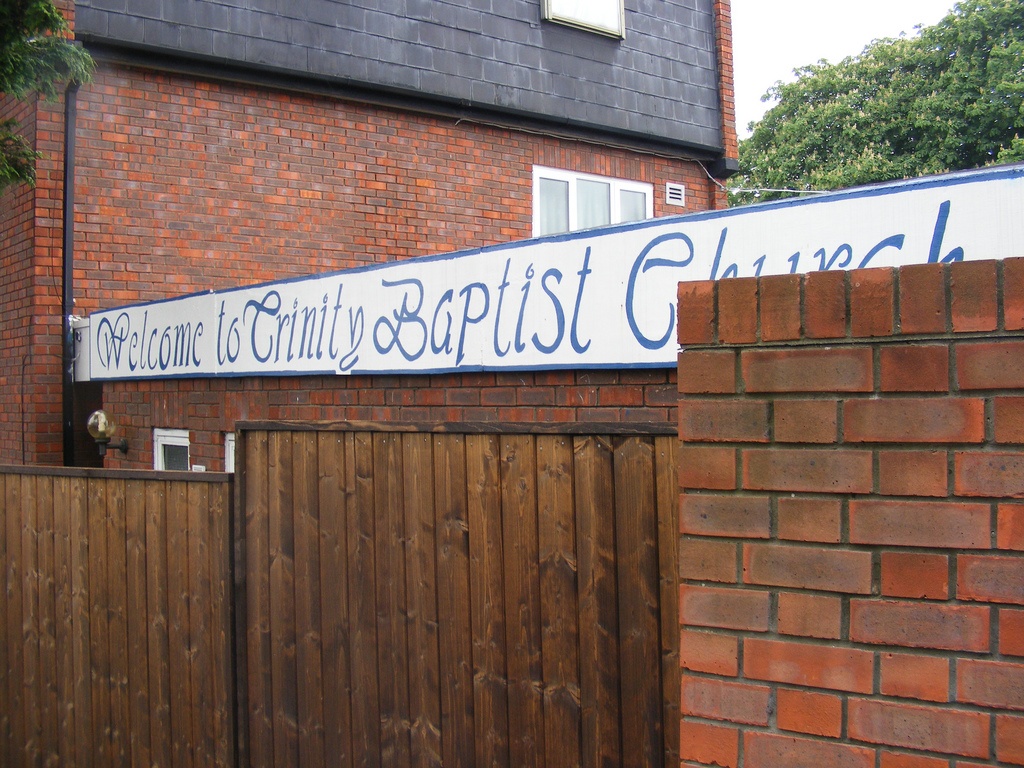 Welcome to Trinity Baptist Church